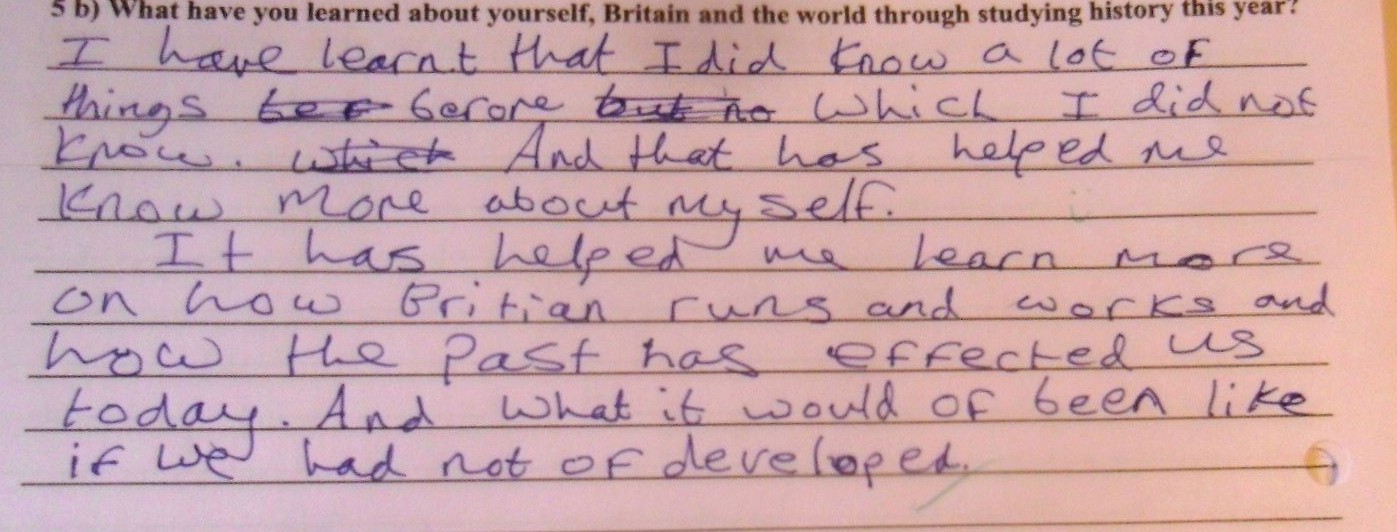 5 b) What have you learned about yourself, Britain and the world through studying history this year?
I have learnt that I did know a lot of
things before which I did not
know. And that has helped me
know more about myself.
It has helped me learn more
on how Britian runs and works and
how the past has effected us
today. And what it would of been like
if we had not of developed.